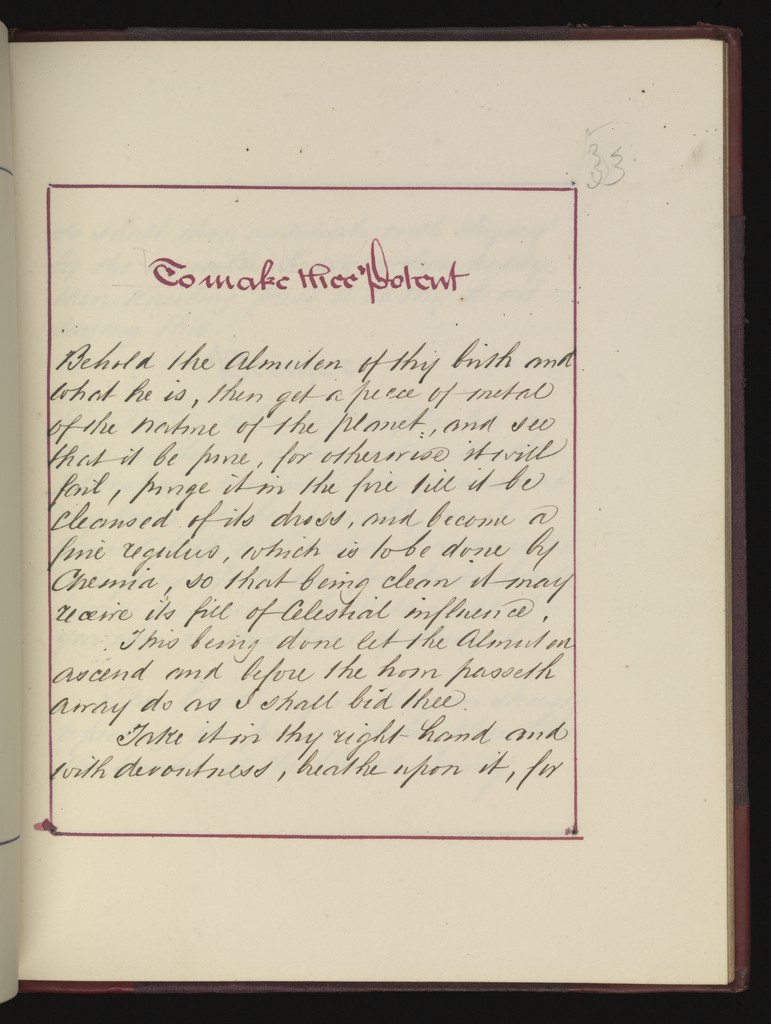 33
To make thee Potent
Behold the Almuten of thy birth and
what he is, then get a piece of metal
of the nature of the planet, and see
that it be pure, for otherwise it will
fail, purge it in the fire till it be
cleansed of its dross, and become a
fine regulus, which is to be done by
Chemia, so that being clean it may
receive its fill of Celestial influence.
This being done let the Almuten
ascend and before the hour passeth
away do as I shall bid thee.
Take it in thy right hand and
with devoutness, breathe upon it, for